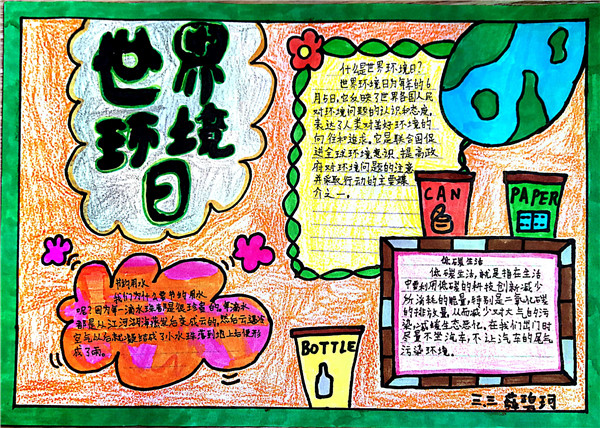 世界
环境
日
什么是世界环境日？
世界环境日为每年的6
月5日，它反映了世界各国人民
对环境问题的认识和态度，
表达了人类对美好环境的
向往和追求。它是联合国促
进全球环境意识、提高政
府对环境问题的注意
并采取行动的主要媒
介之一。
CAN
PAPER
节约用水
我们为什么要节约用水
呢？因为第一滴水珠都是很珍贵的。第滴水
都是从江河湖海蒸发后变成云的，然后云遇冷
空气以后就凝结成了小水珠落到地上后便形
成了雨。
低碳生活
低碳生活，就是指在生活
中要利用低碳的科技创新减少
所消耗的能量，特别是二氧化碳
的排放量，从而减少对大气的污
染，减缓生态恶化。在我们出门时
尽量不坐汽车，不让汽车的尾气
污染环境。
BOTTLE
三.三